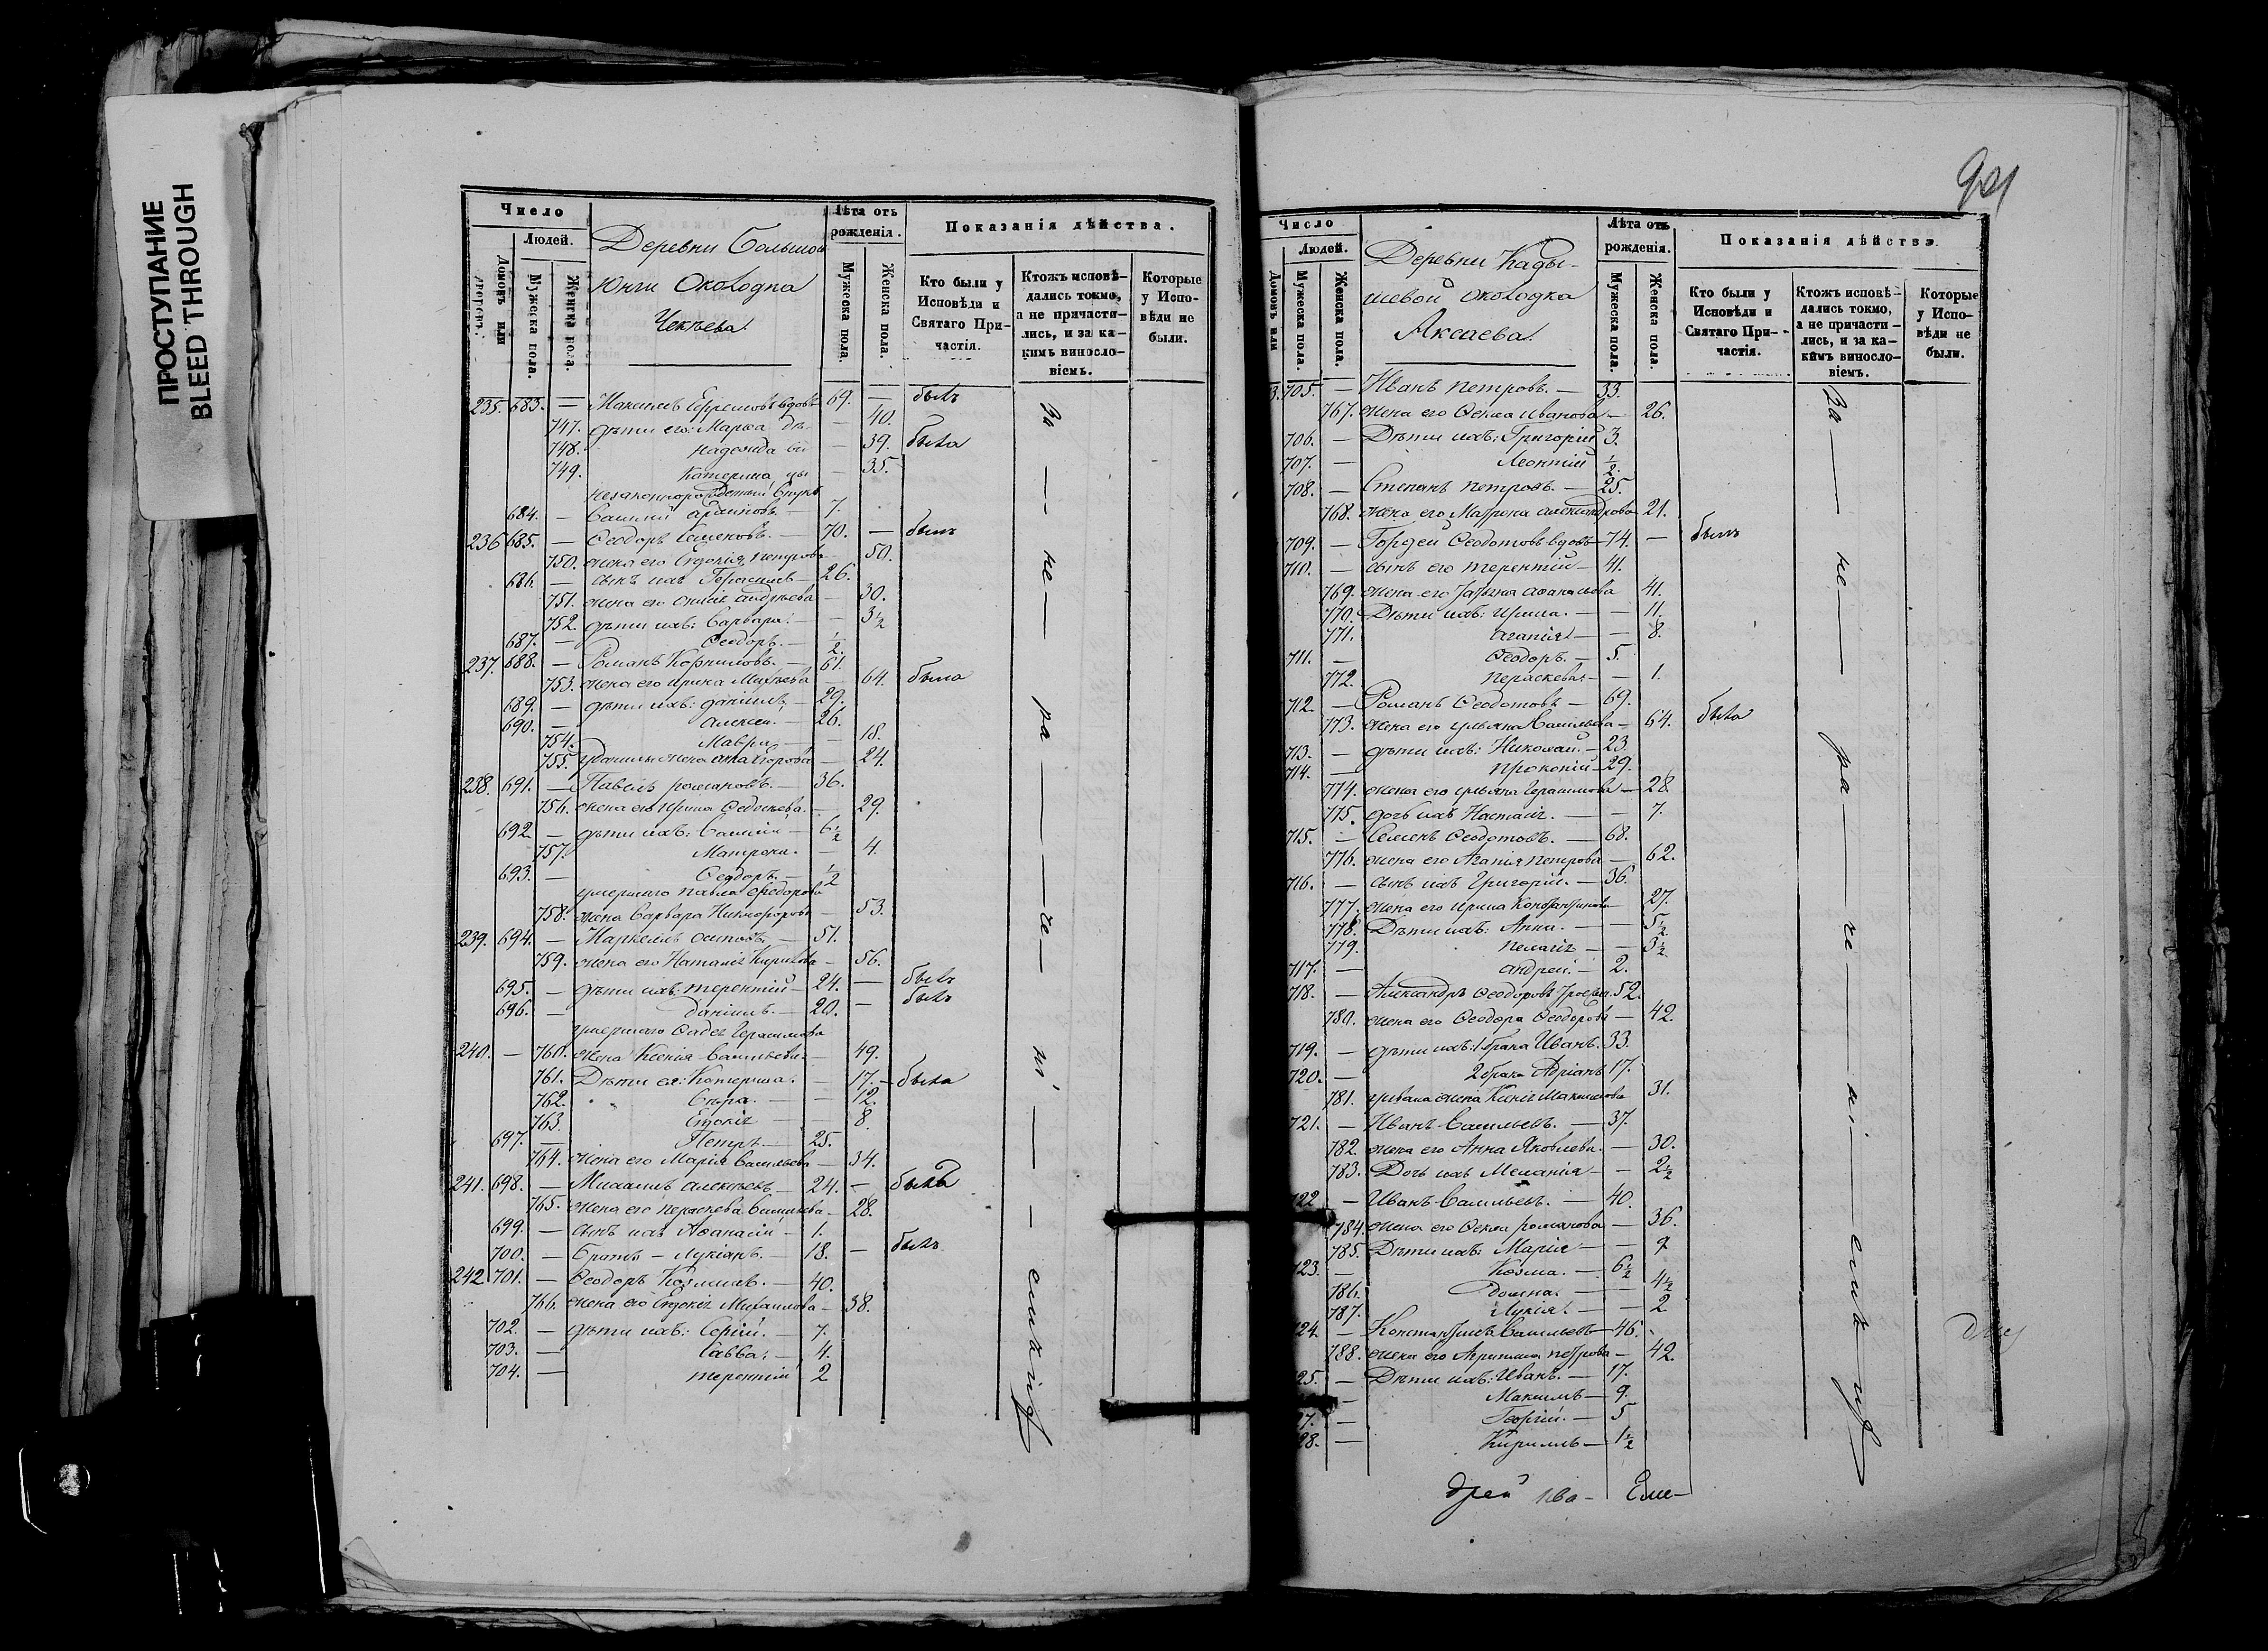 ПРОСТУПАНИЕ
BLEED THROUGH
Число
Людей.
Домовъ или
Мужеска пола.
Женска пола.
Деревни Большой
Юнги Околодка
Чекѣева.
Лѣта отъ рожденія.
Мужеска пола.
Женска пола.
Показанія дѣйства.
Кто были у Исповѣди и Святаго Причастія.
Ктожъ исповѣдались токмо, а не причастились, и за какимъ винословіемъ.
Которые у Исповѣди не были.
235. 683. — Максимъ Ефремовъ вдовъ 69. — былъ
747. дѣти его: Марѳа — 40.
748. Надежда — 39. была
749. Катерина — 35.
незаконнорожденный внукъ
684. — Василий 7.
236 685. — Ѳеодоръ Семеновъ. — 70. — былъ
750. жена его Евдокія Петрова 50.
686. — сынъ ихъ Герасимъ — 26.
751. жена его Андрѣева — 30.
752. дѣти ихъ: Варвара. — 3½
687. — Ѳеодоръ. — ½.
237. 688. — Романъ Корниловъ. — 61.
753. жена его Ирина Михѣева — 64. была
689. — дѣти ихъ: Даніилъ — 29.
690. — Алексей. — 26.
754. Мавра — 18.
755. у Данилы жена Егорова — 24.
238. 691. — Павелъ Романовъ. — 36.
756. жена его Ирина — 29.
692. — дѣти ихъ: Василій — 6½
757. Матрона. — 4.
693. — Ѳеодоръ. — ½
умершаго Павла Ѳеодорова
758. жена Варвара Никифорова — 53.
239. 694. — Маркеллъ Осиповъ. — 51.
759. жена его Наталія Кирилова — 56.
695. — дѣти ихъ: Терентій — 24. — былъ
696. — Даніилъ. — 20. — былъ
умершаго Герасимова
240. — 760. жена Ксенія Васильева. — 49.
761. Дѣти ея: Катерина. — 17. — была
762. Вѣра. — 12.
763. Евдокія — 8.
697. — Петръ — 25.
764. жена его Марія Васильева — 34.
241. 698. — Михаилъ Алексѣевъ — 24. — былъ
765. жена его Параскева Васильева — 28.
699. — сынъ ихъ Аѳанасій — 1.
700. — братъ — Лукіанъ. — 18. — былъ
242 701. — Ѳеодоръ Козминъ. — 40.
766. жена его Евдокія Михаилова — 38.
702. — дѣти ихъ: Сергій. — 7.
703. — Савва. — 4.
704. — Терентій 2
За — не — ра — че — ні — емъ
Число
Людей.
Домовъ или
Мужеска пола.
Женска пола.
Деревни Кады-
шевой околодка
Аксаева.
Лѣта отъ рожденія.
Мужеска пола.
Женска пола.
Показанія дѣйства.
Кто были у Исповѣди и Святаго Причастія.
Ктожъ исповѣдались токмо, а не причастились, и за какимъ винословіемъ.
Которые у Исповѣди не были.
3. 705. — Иванъ Петровъ. — 33.
767. жена его Ѳекла Иванова — 26.
706. — Дѣти ихъ: Григорій 3.
707. — Леонтій ½.
708. — Степанъ Петровъ. — 25.
768. жена его Матрона Александрова 21.
709. — Гордей Ѳеодотовъ вдовъ — 74. — былъ
710. — сынъ его Терентій — 41.
769. жена его Татьяна Аѳанасьева 41.
770. Дѣти ихъ: Ирина. — 11.
771. Агапія — 8.
711. — Ѳеодоръ. — 5.
772. Параскева — 1.
712. — Романъ Ѳеодотовъ — 69.
773. жена его Ульяна Васильева — 64. была
713. — дѣти ихъ: Николай. — 23
714. — Прокопій — 29.
774. жена его Ульяна Герасимова — 28.
775. дочь ихъ Настасія. — 7.
715. — Семенъ Ѳеодотовъ. — 68.
776. жена его Агапія Петрова — 62.
716. — сынъ ихъ Григорій. — 36.
777. жена его Ирина Константинова 27.
778. Дѣти ихъ: Анна. — 5½
779. Пелагія — 3½
717. — Андрей. — 2.
718. — Александръ Ѳеодоровъ 52.
780. жена его Ѳеодора Ѳеодорова — 42.
719. — дѣти ихъ: 1 брака Иванъ. 33.
720. — 2 брака Адріанъ 17.
781. у Ивана жена Ксенія Максимова 31.
721. — Иванъ Васильевъ. — 37.
782. жена его Анна Яковлева. — 30.
783. Дочь ихъ Меланія — 2½
722 — Иванъ Васильевъ. — 40.
784. жена его Ѳекла Романова — 36.
785. Дѣти ихъ: Марія — 9
723. — Козма. — 6½
786. Домна. — 4½
787. Лукія — 2
724. — Константинъ Васильевъ — 46.
788. жена его Агрипина Петрова — 42.
25. — Дѣти ихъ: Иванъ. — 17.
— Максимъ — 9.
7. — Георгій. — 5
28. — Кириллъ — 1½
За — не — ра — че — ні — емъ
дрей Ива- Еме-